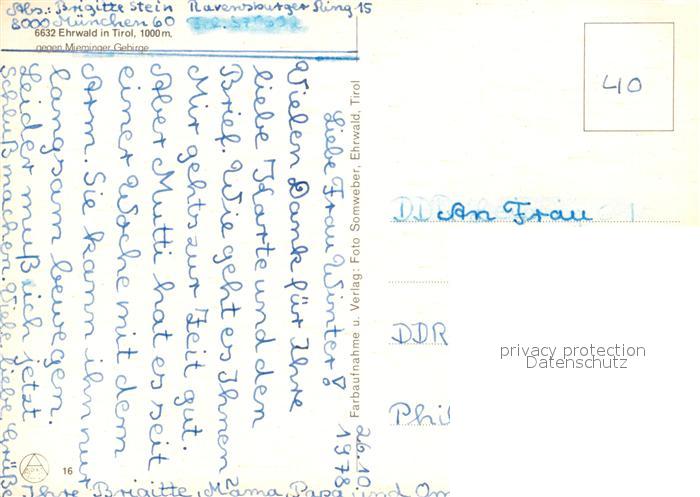 Abs.: Brigitte Stein Ravensburger Ring 15
8000 München 60
6632 Ehrwald in Tirol, 1000 m,
gegen Mieminger Gebirge
26.10.
1978
Liebe Frau Winter!
Vielen Dank für Ihre
liebe Karte und den
Brief. Wie geht es Ihnen?
Mir geht es zur Zeit gut.
Aber Mutti hat es seit
einer Woche mit dem
Arm. Sie kann ihn nur
langsam bewegen.
Leider muß ich jetzt
Schluß machen. Viele liebe Grüße
Ihre Brigitte, Mama, Papa und Om
Farbaufnahme u. Verlag: Foto Somweber, Ehrwald, Tirol
16
40
An Frau
DDR
Phi
privacy protection
Datenschutz